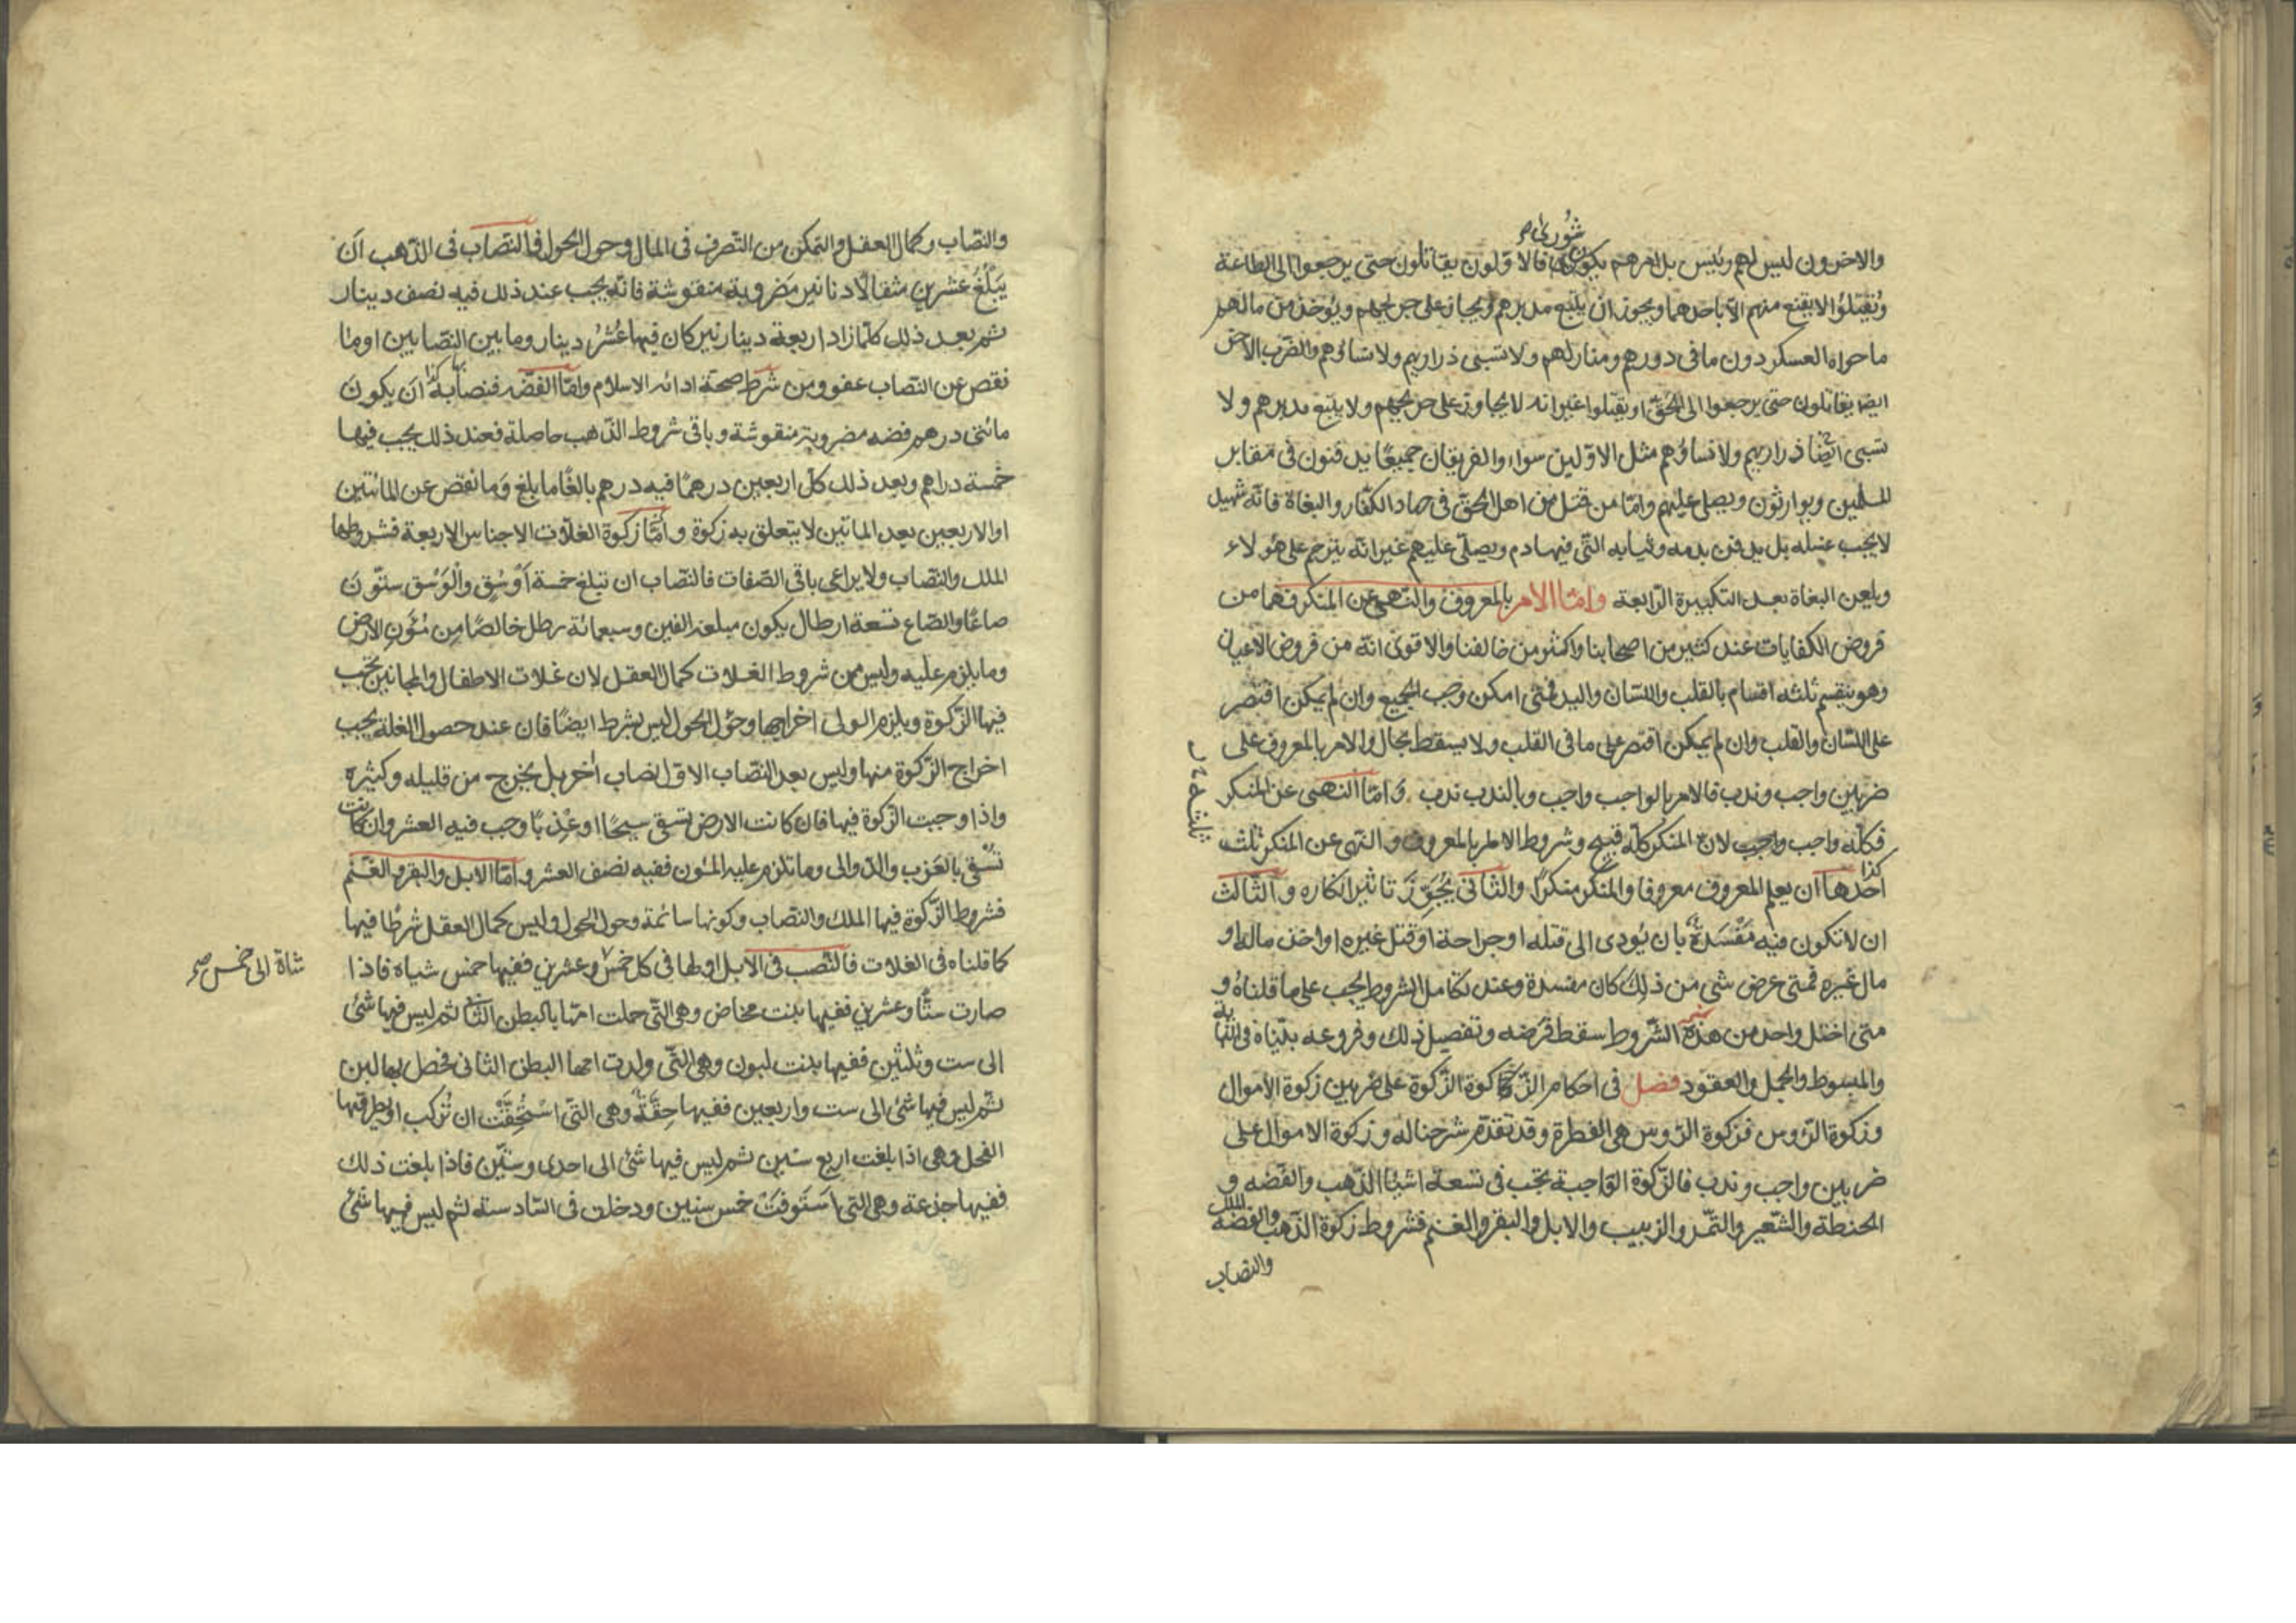 شورى صح
والاخرون ليس لهم رئيس بل امرهم يكون فالاولون يقاتلون حتى يرجعوا الى الطاعة
ويقتلوا لا يقنع منهم الا باحدهما ويجوز ان يتبع مدبرهم ويجاز على جريحهم ويؤخذ من مالهم
ما حواه العسكر دون ما فى دورهم ومنازلهم ولا تسبى ذراريهم ولا نساؤهم والضرب الاخر
ايضا يقاتلون حتى يرجعوا الى الحق او يقتلوا غير انه لا يجاوز على جريحهم ولا يتبع مدبرهم ولا
تسبى ايضا ذراريهم ولا نساؤهم مثل الاولين سواء والفريقان جميعا يدفنون فى مقابر
المسلمين ويوارثون ويصلى عليهم وامّا من قتل من اهل الحق فى جهاد الكفار والبغاة فانه شهيد
لا يجب غسله بل يدفن بدمه وثيابه التى فيها دم ويصلّى عليهم غير انه يترحم على هؤلاء
ويلعن البغاة بعد التكبيرة الرّابعة وامّا الامر بالمعروف والنهى عن المنكر فهما من
فروض الكفايات عند كثير من اصحابنا واكثر من خالفنا والاقوى انه من فروض الاعيان
وهو ينقسم ثلثه اقسام بالقلب واللسان واليد فمتى امكن وجب الجميع وان لم يمكن اقتصر
على اللسان والقلب وان لم يمكن اقتصر على ما فى القلب ولا يسقط بحال والامر بالمعروف على
ضربين واجب وندب فالامر بالواجب واجب وبالندب ندب وامّا النهى عن المنكر
فكلّه واجب واجب لان المنكر كلّه قبيح وشروط الامر بالمعروف والنهى عن المنكر ثلث
كذا
احدها ان يعلم المعروف معروفا والمنكر منكرًا والثانى يُجَوِّزَ تاثير انكاره والثالث
ان لا تكون فيه مَفْسَدةٌ بان يُودى الى قتله او جراحة او قتل غيره او اخذ ماله او
مال غيره فمتى عرض شئ من ذلك كان مفسدة وعند تكامل الشروط يجب على ما قلناه و
متى اختل واحد من هذه الشّروط سقط فرضه وتفصيل ذلك وفروعه بيّناه فى النهاية
والمبسوط والجمل والعقود فصل فى احكام الزكوة الزّكوة على ضربين زكوة الأموال
وزكوة الرّوس فزكوة الرّوس هى الفطرة وقد تقدّم شرحنا له وزكوة الاموال على
ضربين واجب وندب فالزّكوة الواجبة تجب فى تسعة اشيا الذّهب والفضّه و
الحنطة والشّعير والتّمر والزبيب والابل والبقر والغنم فشروط زكوة الذّهب والفضّه الملك
والنصاب
والنّصاب وكمال العقل والتمكن من التّصرف فى المال وحول الحول فالنصاب فى الذّهب اَن
يَبْلُغُ عشرين مثقالًا دنانير مَضروبة منقوشة فانّه يجب عند ذلك فيه نصف دينار
ثم بعد ذلك كلّما زاد اربعة دينارنير كان فيها عُشرُ دينار وما بين النّصابين او ما
نقص عن النصاب عفو ومن شرط صحّة ادائه الاسلام وامّا الفضّه فنصابه اَن يكون
مائتى درهم فضه مضروبة منقوشة وباقى شروط الذّهب حاصلة فعند ذلك يجب فيها
خمسة دراهم وبعد ذلك كلّ اربعين درهمًا فيه درهم بالغًا ما بلغ وَما نقص عن المائتين
او الاربعين بعد الماتين لا يتعلق به زكوة وامّا زكوة الغلّات الاجناس الاربعة فشروطها
الملك والنّصاب ولا يراعى باقى الصّفات فالنّصاب ان تبلغ خمسة اَوْسُقٍ والْوَسْق ستّون
صاعًا والصّاع تسعة ارطال يكون مبلغه الفين وسبعمائة رطل خالصًا مِن مُؤَنِ الارض
وما يلزم عليه وليس من شروط الغلات كمال العقل لان غلات الاطفال والمجانين تجب
فيها الزّكوة ويلزم الولى اخراجها وحَوْل الحول ليس بشرط ايضًا فان عند حصول الغلة يجب
اخراج الزّكوة منها وليس بعد النّصاب الاوّل نصاب أخر بل يخرج من قليله وكثيره
واذا وجبت الزّكوة فيها فان كانت الارض تسقى سيحًا او عَذْبًا وجب فيه العشر وان كانت
تُسْقى بالغَرب والدّوالى وما تلزم عليه المئون ففيه نصف العشر وامّا الابل والبقر والغنم
فشروط الزّكوة فيها الملك والنّصاب وكونها سائمة وحول الحول وليس كمال العقل شرطًا فيها
كما قلناه فى الغلات فالنّصب فى الابل اولها فى كل خمس وعشرين ففيها خمس شياه فاذا
شاة الى خمس صح
صارت ستًّا وعشرين ففيها بنت مخاض وهى الّتى حملت امّها بالبطن الثانى ثم ليس فيها شئ
الى ست وثلثين ففيها بنت لبون وهى الّتى ولدت امها البطن الثانى فحصل بها لبن
ثمّ ليس فيها شئ الى ست واربعين ففيها حِقَّةٌ وهى الّتى اسْتُحِقَّتْ ان تُركب او يطرقها
الفحل وهى اذا بلغت اربع سنين ثم ليس فيها شئ الى احدى وستّين فاذا بلغت ذلك
ففيها جذعة وهى التى اسْتَوفَتْ خمس سنين ودخلت فى السّادسة ثم ليس فيها شئ